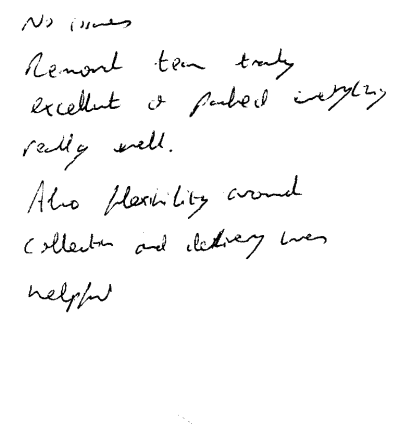 No issues
Removal team truly
excellent & packed everything
really well.
Also flexibility around
collection and delivery was
helpful